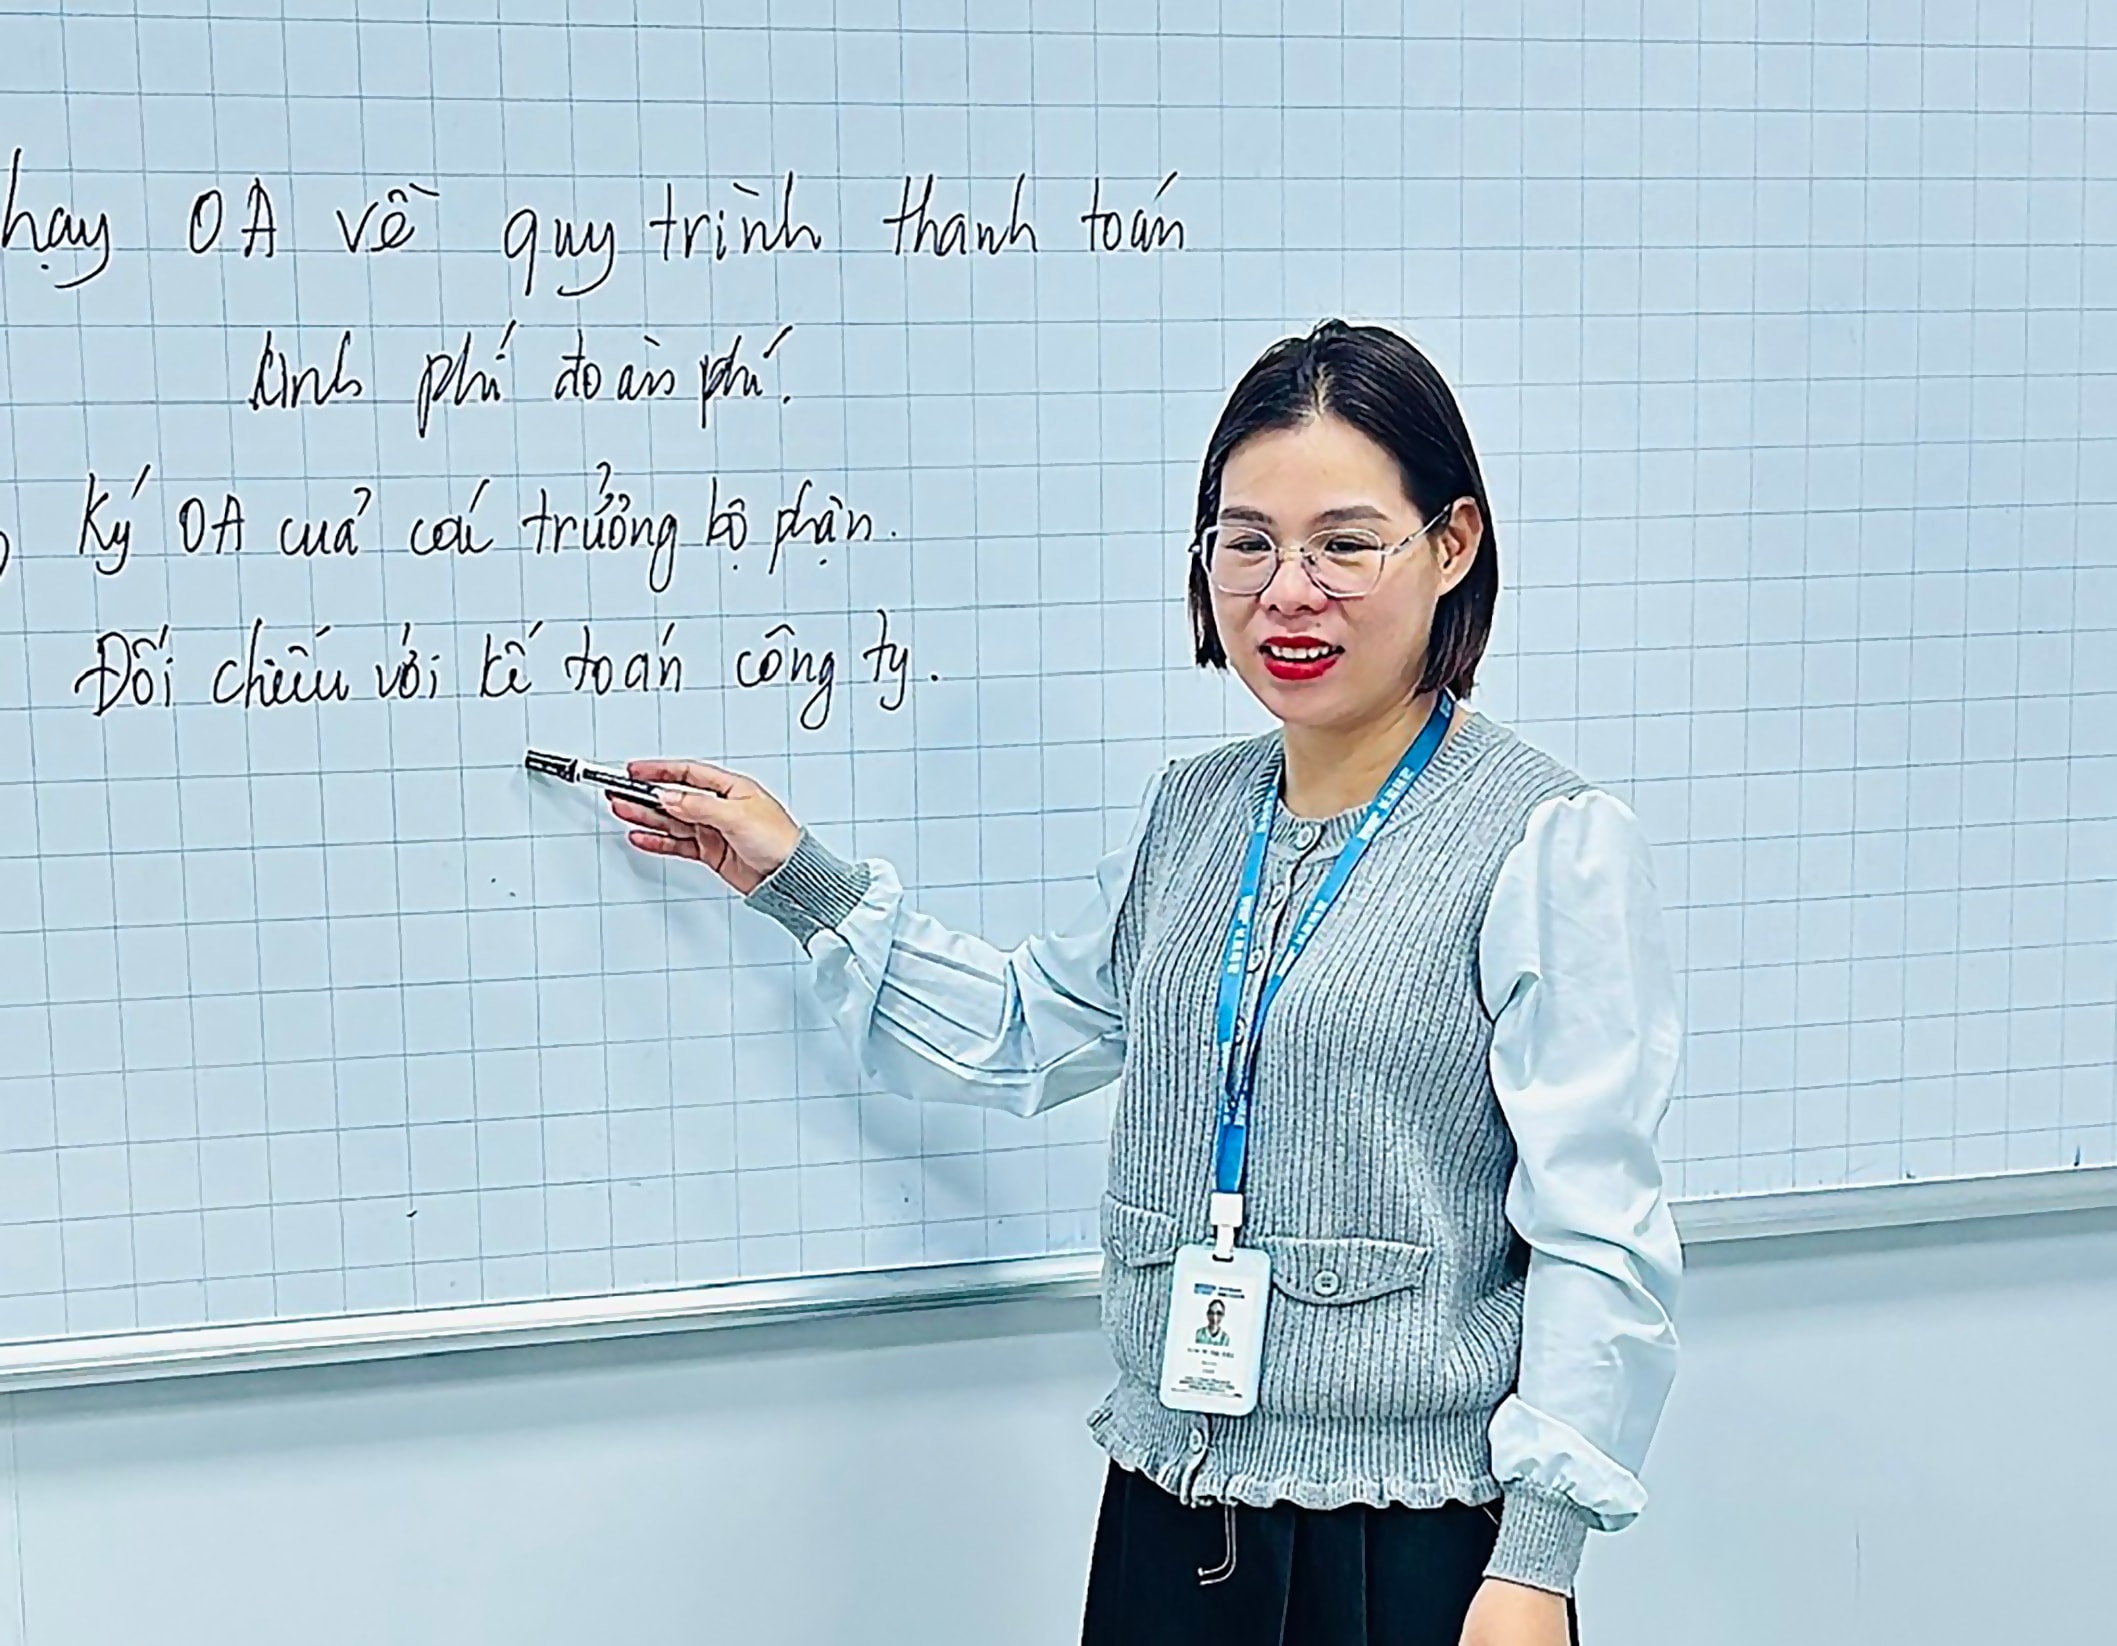 hạy OA về quy trình thanh toán
kinh phí đoàn phí.
Ký OA cuả các trưởng bộ phận.
Đối chiếu với kế toán công ty.